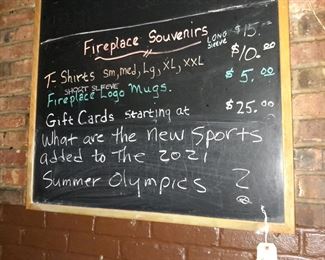 Fireplace Souvenirs
LONG SLEEVE $15.00
T-Shirts sm, med, Lg, XL, XXL $10.00
SHORT SLEEVE
Fireplace Logo Mugs. $5.00
Gift Cards starting at $25.00
What are the new Sports
added to The 2021
Summer Olympics ?